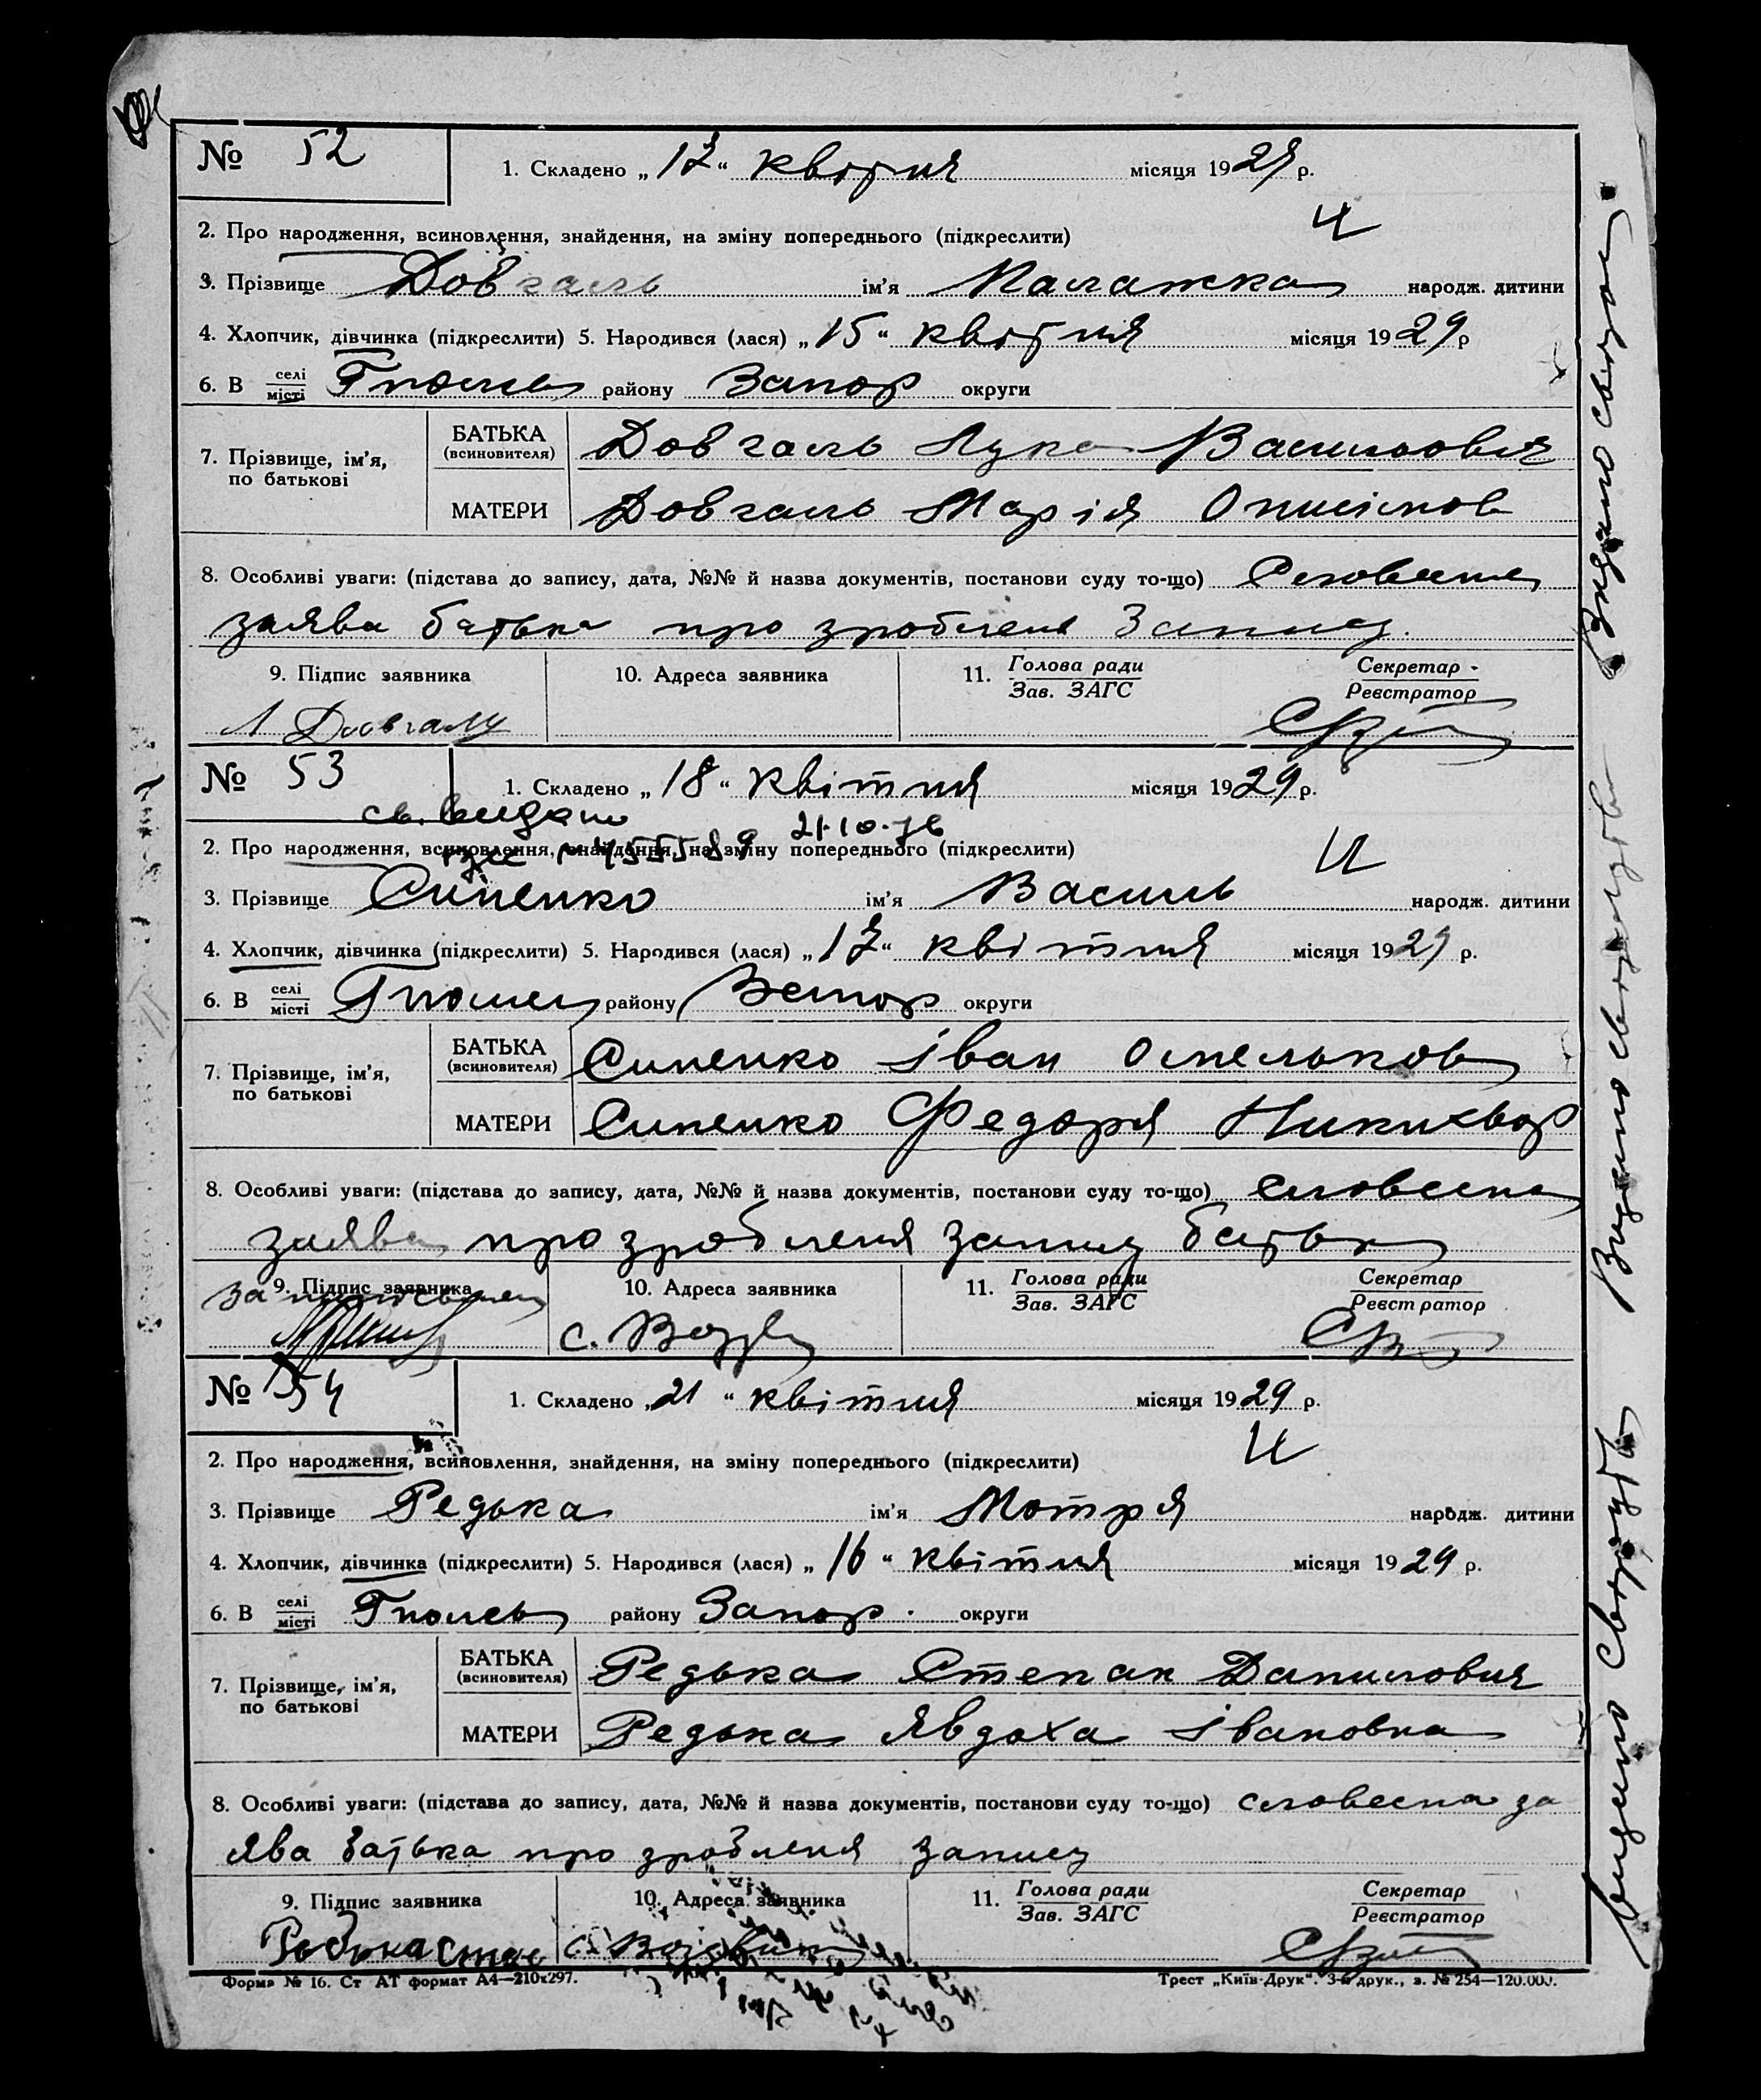 № 52 1. Складено „17“ квітня місяця 1929 р.
2. Про народження, всиновлення, знайдення, на зміну попереднього (підкреслити)
3. Прізвище Довгаль ім'я Палажка народж. дитини
4. Хлопчик, дівчинка (підкреслити) 5. Народився (лася) „15“ квітня місяця 1929 р
6. В селі місті району Запор округи
7. Прізвище, ім'я, по батькові
БАТЬКА (всиновителя) Довгаль Лука Васильович
МАТЕРИ Довгаль Марія Онисімов
8. Особливі уваги: (підстава до запису, дата, №№ й назва документів, постанови суду то-що) Словесна
заява батька про зробленя Запису.
9. Підпис заявника 10. Адреса заявника 11. Голова ради Зав. ЗАГС Секретар - Реєстратор
Л Довгаль
№ 53 1. Складено „18“ квітня місяця 1929 р.
св. видано
21.10.76
2. Про народження, всиновлення, знайдення, на зміну попереднього (підкреслити)
3. Прізвище Синенко ім'я Василь народж. дитини
4. Хлопчик, дівчинка (підкреслити) 5. Народився (лася) „17“ квітня місяця 1929 р.
6. В селі місті району Запор округи
7. Прізвище, ім'я, по батькові
БАТЬКА (всиновителя) Синенко Іван Омельков
МАТЕРИ Синенко Федоря Никихвор
8. Особливі уваги: (підстава до запису, дата, №№ й назва документів, постанови суду то-що) словесна
заява про зробленя запису батька
9. Підпис заявника 10. Адреса заявника 11. Голова ради Зав. ЗАГС Секретар Реєстратор
№ 54 1. Складено „21“ квітня місяця 1929 р.
2. Про народження, всиновлення, знайдення, на зміну попереднього (підкреслити)
3. Прізвище Редька ім'я Мотря народж. дитини
4. Хлопчик, дівчинка (підкреслити) 5. Народився (лася) „16“ квітня місяця 1929 р.
6. В селі місті району Запор. округи
7. Прізвище, ім'я, по батькові
БАТЬКА (всиновителя) Редька Степан Данилович
МАТЕРИ Редька Явдоха Івановна
8. Особливі уваги: (підстава до запису, дата, №№ й назва документів, постанови суду то-що) словесна за
ява батька про зробленя запису
9. Підпис заявника 10. Адреса заявника 11. Голова ради Зав. ЗАГС Секретар Реєстратор
Форма № 16. Ст АТ формат А4—210х297. Трест „Київ-Друк“. 3-я друк., з. № 254—120.000.
Видано
Видано
Видано